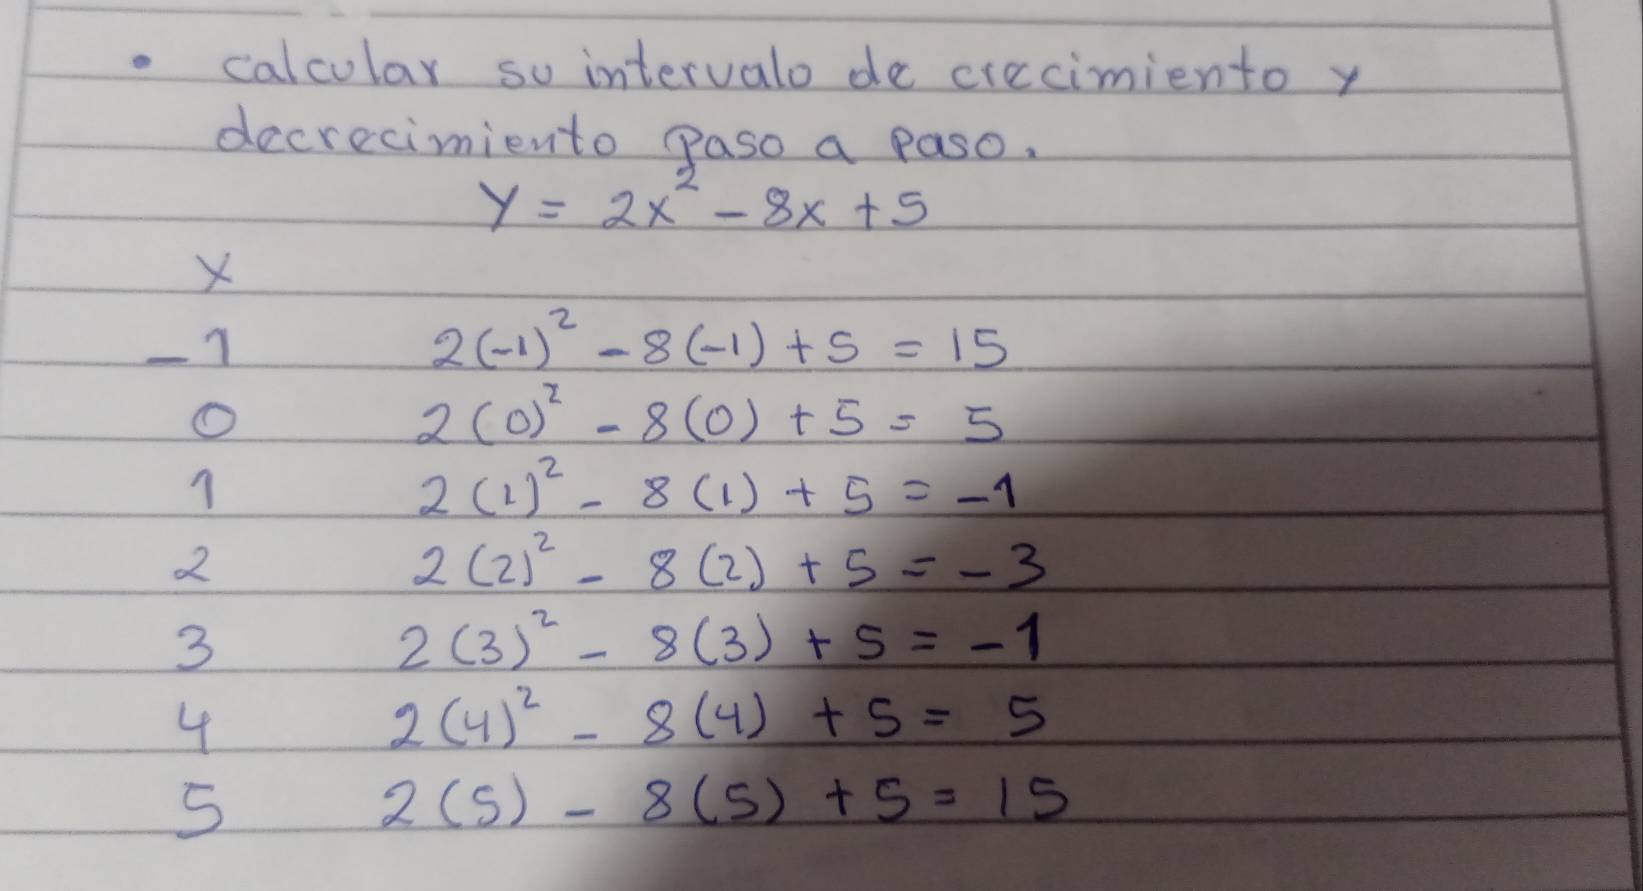 • calcular su intervalo de crecimiento y
decrecimiento paso a paso.
y = 2x² - 8x + 5
x
-1 2(-1)² - 8(-1) + 5 = 15
0 2(0)² - 8(0) + 5 = 5
1 2(1)² - 8(1) + 5 = -1
2 2(2)² - 8(2) + 5 = -3
3 2(3)² - 8(3) + 5 = -1
4 2(4)² - 8(4) + 5 = 5
5 2(5) - 8(5) + 5 = 15